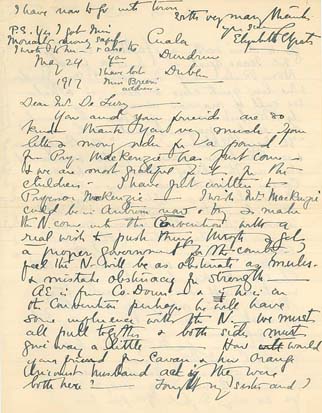 I have now to go into town
with very many thanks
yrs
Elizabeth C Yeats
P.S. Yes I got Miss
Cuala
Dundrum
Dublin
May 24
1917
I have lost
Miss
address
Dear Mr De Lury
You and your friends are so
kind thank you very much Your
letter & money order for a pound
for Prof. MacKenzie has just come
& we are most grateful for it for the
children. I have just written to
Professor MacKenzie I wish Mr MacKenzie
could be in Antrim now & try & make
the N come into the Convention with a
real wish to push things through & get
a proper government for the country. I
feel the N will be as obstinate as mules
& mistake obstinacy for strength
AE is from Co. Down & if he is in
the Convention perhaps he will have
some influence with the N. we must
all pull together & both sides must
give way a little How would
your friend from Cavan & her Orange
husband act if they were
both here?